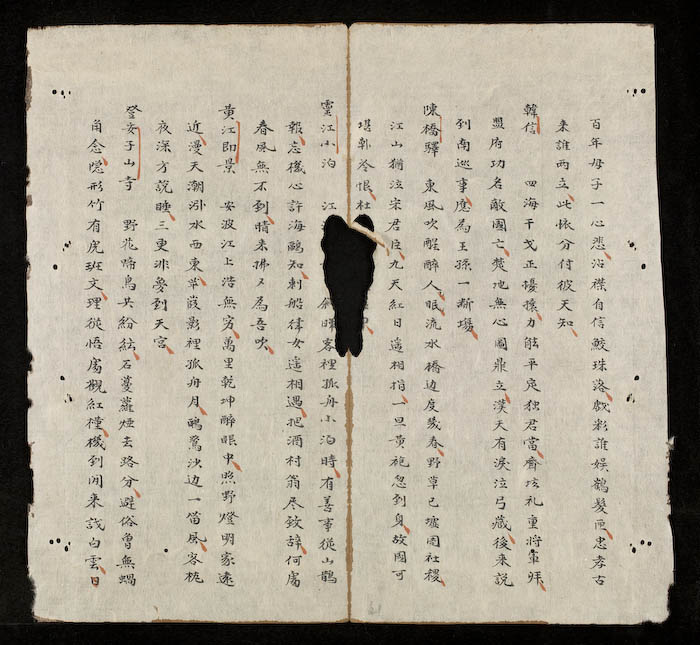 百年母子一心悲沾襟自信鮫珠落戲彩誰娛鶴髮垂忠孝古
來誰兩立此懷分付彼天知
韓信 四海干戈正擾攘力能平定独君當齊垓礼重將軍拜
盟府功名敵國亡楚地無心圖鼎立漢天有淚泣弓藏後來説
到南巡事應為王孫一斷塲
陳橋驛 東風吹醒醉人眠流水橋边度幾春野草已墟周社稷
江山猶泣宋君臣九天紅日遙相指一旦黃袍忽到身故國可
堪乹冷恨杜
靈江小泊 江 客裡孤舟小泊時有善事從山鵲
報忘機心許海鷗知刺船律女遥相遇把酒村翁尽致辞何處
春風無不到晴來拂又為吾吹
黄江即景 安波江上浩無穷萬里乾坤醉眼中照野燈明家遠
近漫天潮汐水西東葦葭影裡孤舟月鷗鷺泱边一笛風客梡
夜深方説睡三更洴夢到天宮
登安子山寺 野花啼鳥共紛紜石蔓蘿煙去路分避俗曾無蝸
角念隐形竹有虎班文理從悟處觀紅槿機到閒来説白雲日